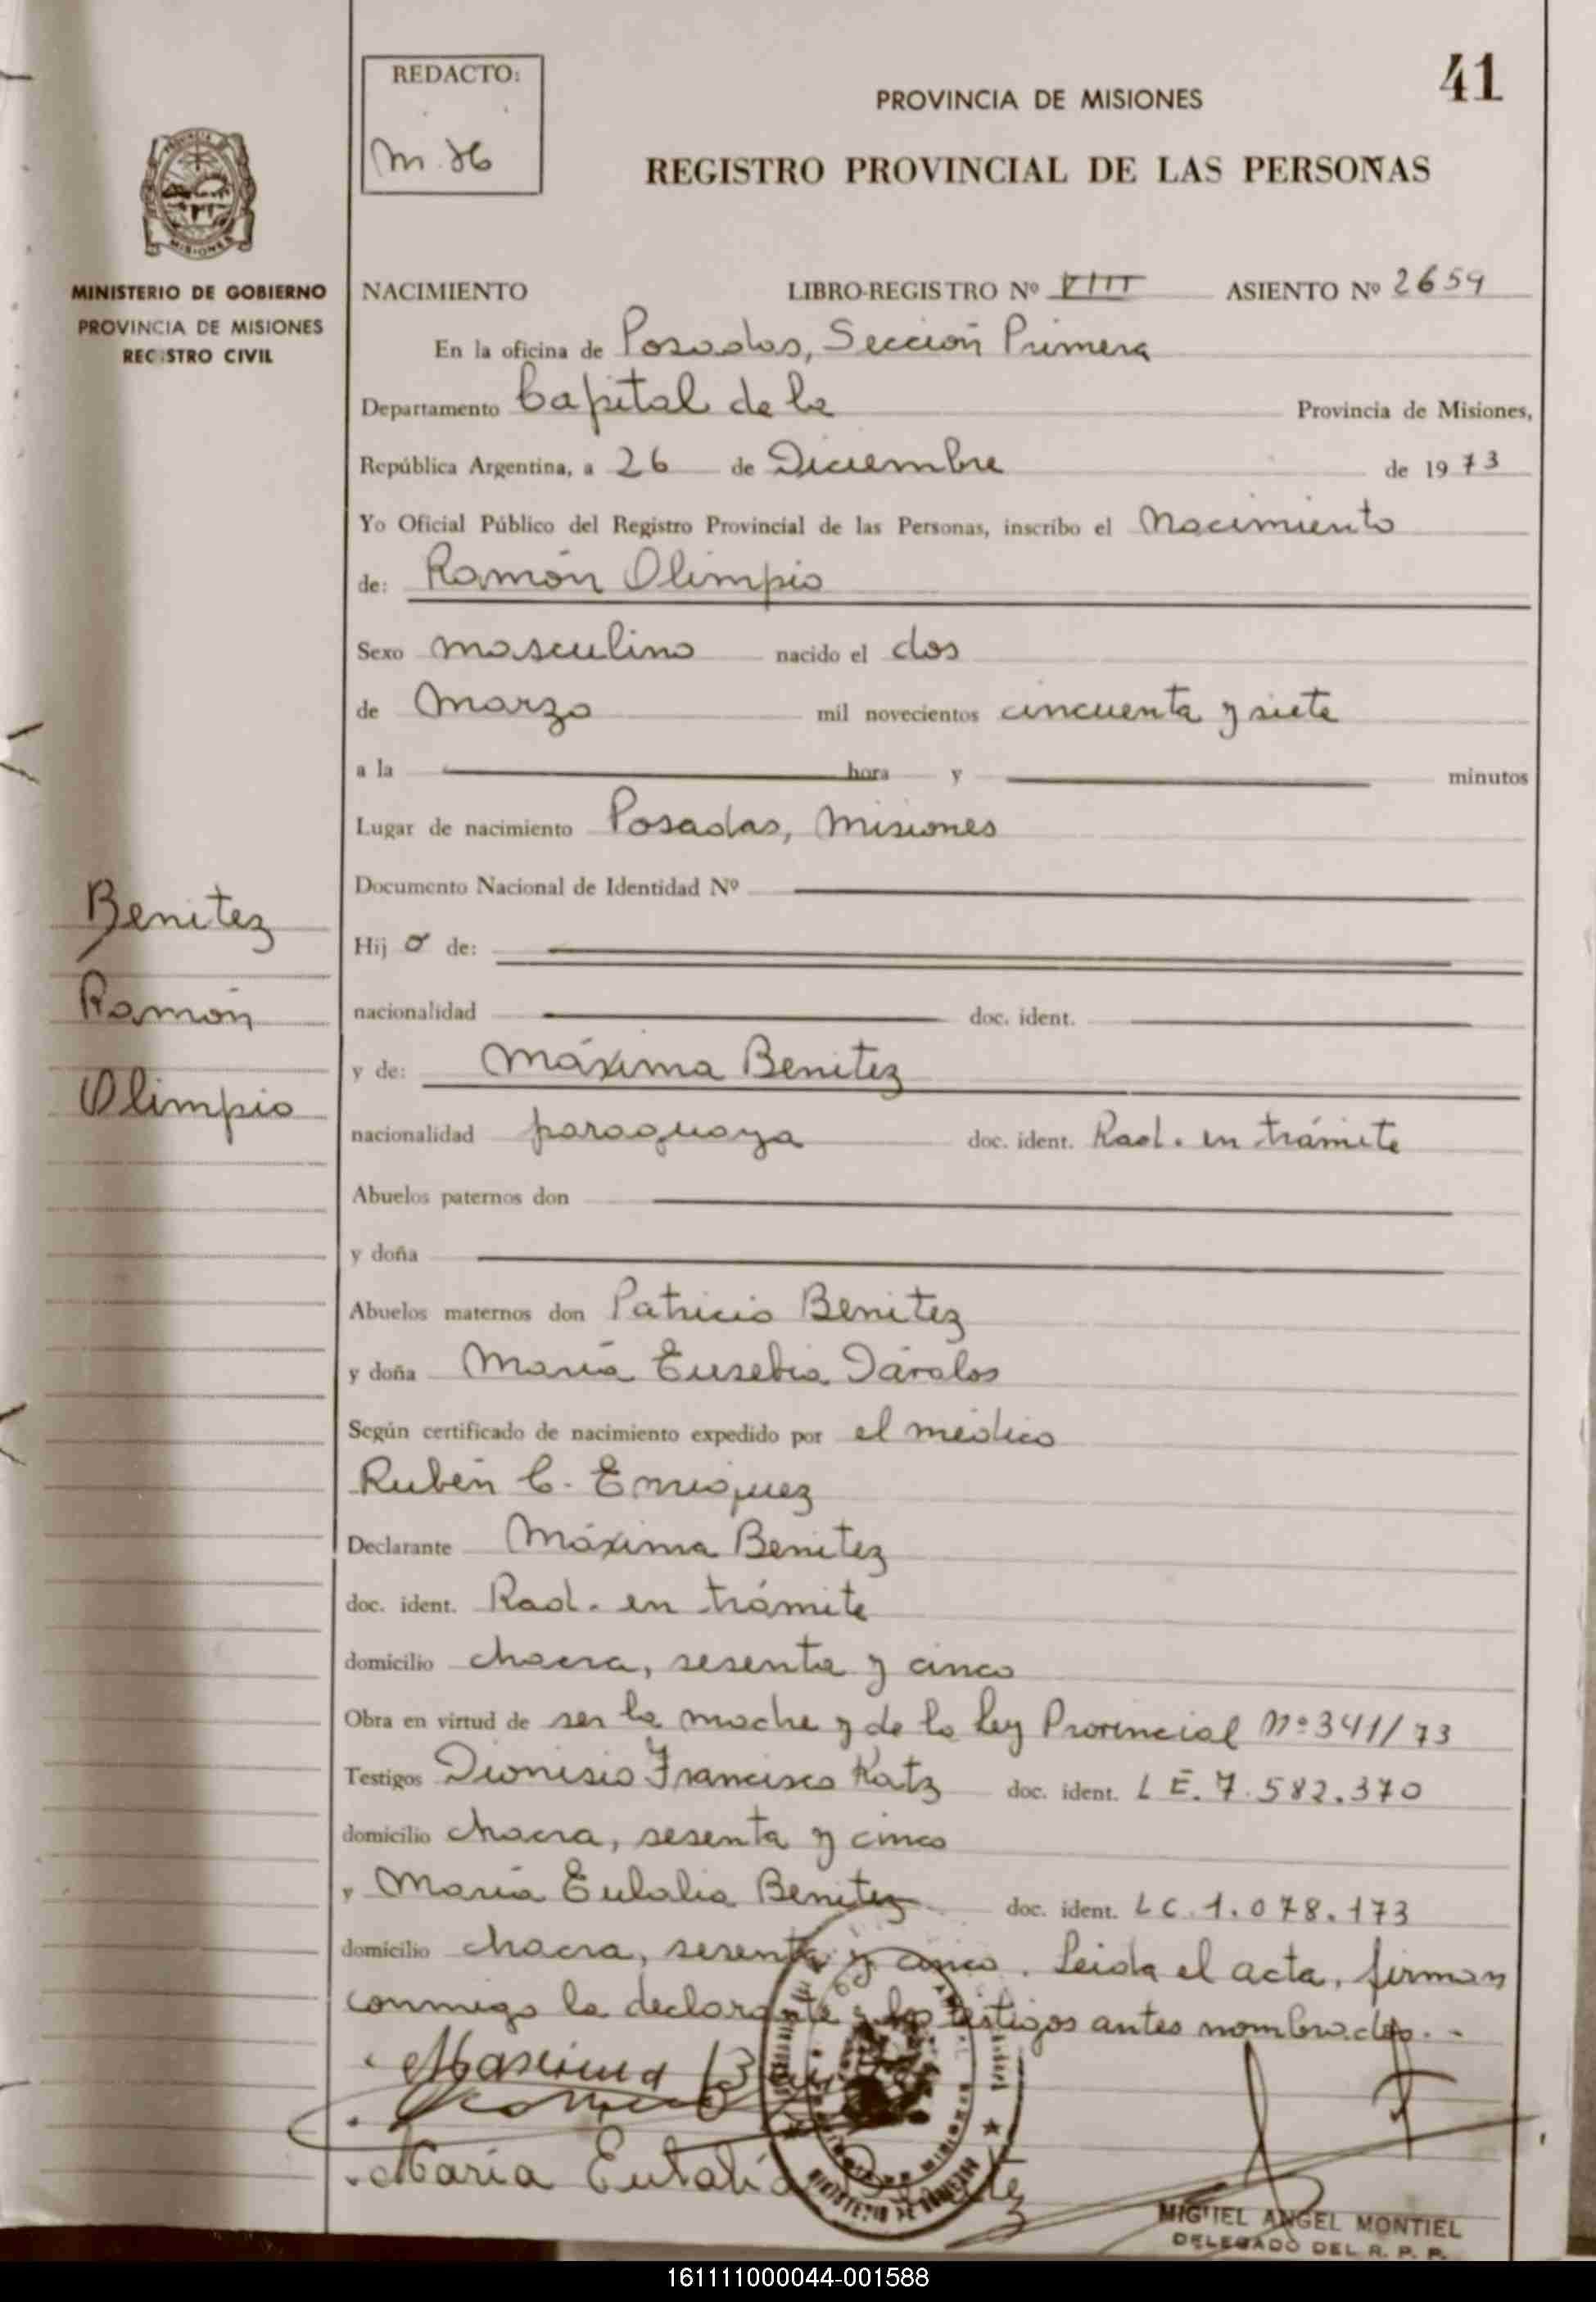 REDACTO:
PROVINCIA DE MISIONES
41
REGISTRO PROVINCIAL DE LAS PERSONAS
MINISTERIO DE GOBIERNO
PROVINCIA DE MISIONES
REGISTRO CIVIL
NACIMIENTO LIBRO-REGISTRO Nº VIII ASIENTO Nº 2659
En la oficina de Posadas, Sección Primera
Departamento Capital de la Provincia de Misiones,
República Argentina, a 26 de Diciembre de 1973
Yo Oficial Público del Registro Provincial de las Personas, inscribo el Nacimiento
de: Ramón Olimpio
Sexo masculino nacido el dos
de Marzo mil novecientos cincuenta y siete
a la hora y minutos
Lugar de nacimiento Posadas, Misiones
Documento Nacional de Identidad Nº
Hijo de:
nacionalidad doc. ident.
y de: Máxima Benitez
nacionalidad paraguaya doc. ident. Rad. en trámite
Abuelos paternos don
y doña
Abuelos maternos don Patricio Benitez
y doña María Eusebia Dávalos
Según certificado de nacimiento expedido por el médico
Rubén C. Enriquez
Declarante Máxima Benitez
doc. ident. Rad. en trámite
domicilio chacra, sesenta y cinco
Obra en virtud de ser la madre y de la Ley Provincial Nº 341/73
Testigos Dionisio Francisco Katz doc. ident. L E. 7.582.370
domicilio chacra, sesenta y cinco
y María Eulalia Benitez doc. ident. L C. 1.078.173
domicilio chacra, sesenta y cinco. Leida el acta, firman
conmigo la declarante y los testigos antes nombrados.-
Benitez
Ramón
Olimpio
Maxima
Maria Eulalia
MIGUEL ANGEL MONTIEL
DELEGADO DEL R. P. P.
161111000044-001588